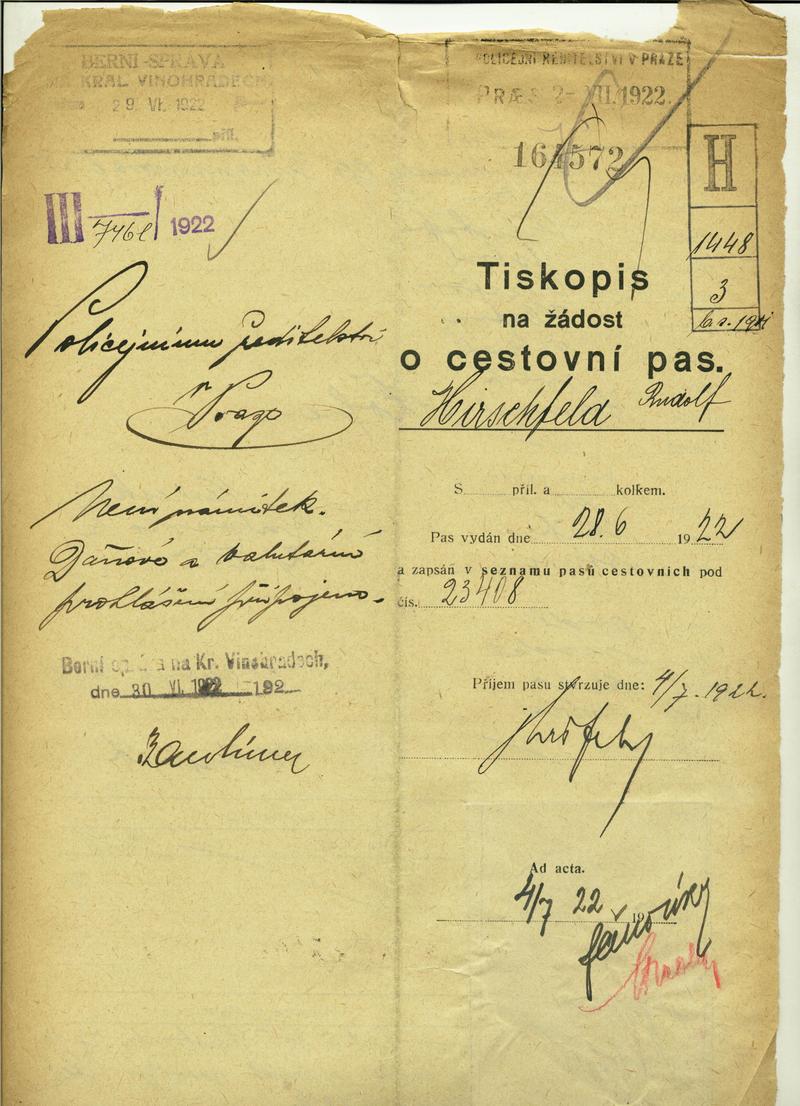 BERNÍ SPRÁVA
NA KRÁL. VINOHRADECH
29. VI. 1922
příl.
III 7461/1922
Policejnímu ředitelství
v Praze
Není námitek.
Daňové a valutární
prohlášení připojeno.
Berní správa na Kr. Vinohradech,
dne 30 VI. 1922 192
POLICEJNÍ ŘEDITELSTVÍ V PRAZE
PRÆS 2- VII. 1922.
164572
H
1448
3
Tiskopis
na žádost
o cestovní pas.
Hirschfeld Rudolf
S příl. a kolkem.
Pas vydán dne 28.6 1922
a zapsán v seznamu pasů cestovních pod
čís. 23408
Příjem pasu stvrzuje dne: 4/7. 1922.
Ad acta.
4/7 22 19